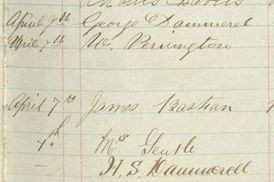 April 7th George Dammerel
April 7th W. Pennington
April 7th James Bastian
7th Mrs Gentle
H. S. Dammerell